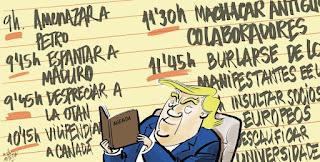 9h AMENAZAR A
PETRO
9'15h ESPANTAR A
MADURO
9'45h DESPRECIAR A
LA OTAN
10'15h VILIPENDIA
A CANADÁ
11'30h MACHACAR ANTIGU
COLABORADORES
11'45h BURLARSE DE LO
MANIFESTANTES
INSULTAR SOCIOS
EUROPEOS
DESCALIFICAR
UNIVERSIDADE
AGENDA